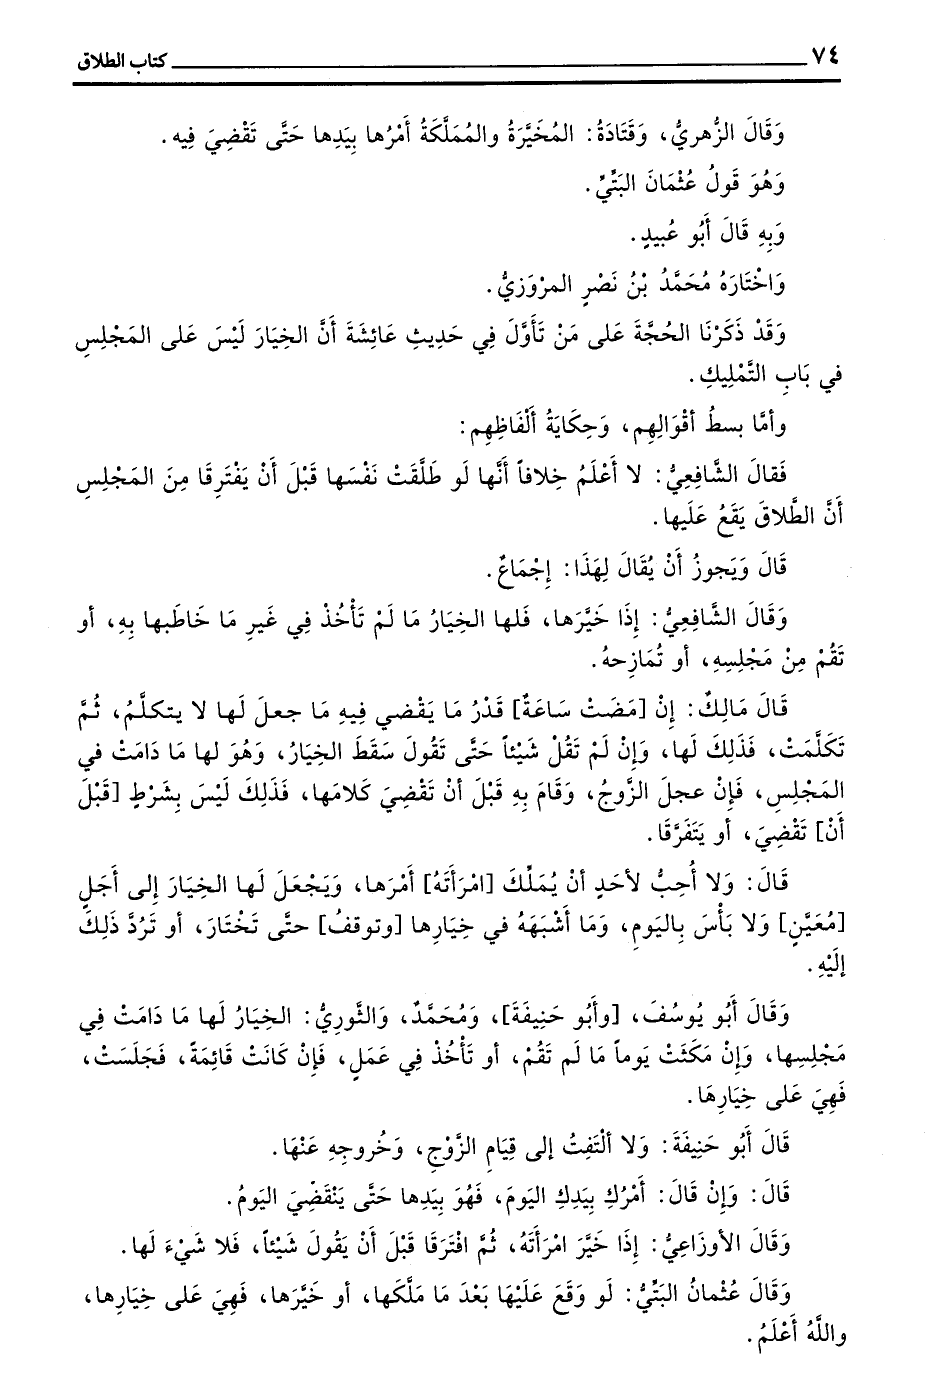 ٧٤ كتاب الطلاق
وَقَالَ الزُّهريُّ، وَقَتَادَةُ: المُخَيَّرَةُ والمُمَلَّكَةُ أَمْرُها بِيَدِها حَتَّى تَقْضِيَ فِيه.
وَهُوَ قَولُ عُثْمَانَ البَتِّيِّ.
وَبِهِ قَالَ أَبُو عُبيدٍ.
وَاخْتَارَهُ مُحَمَّدُ بْنُ نَصْرٍ المرْوَزيُّ.
وَقَدْ ذَكَرْنَا الحُجَّةَ عَلى مَنْ تَأَوَّلَ فِي حَدِيثِ عَائِشَةَ أَنَّ الخِيَارَ لَيْسَ عَلى المَجْلِسِ
في بَابِ التَّمْلِيكِ.
وأمَّا بسطُ أقْوَالِهِم، وَحِكَايَةُ ألْفَاظِهِم:
فَقالَ الشَّافِعِيُّ: لا أَعْلَمُ خِلافاً أَنَّها لَو طَلَّقَتْ نَفْسَها قَبْلَ أَنْ يَفْتَرِقَا مِنَ المَجْلِسِ
أَنَّ الطَّلاقَ يَقَعُ عَلَيها.
قَالَ وَيَجوزُ أَنْ يُقَالَ لِهَذَا: إِجْمَاعٌ.
وَقَالَ الشَّافِعِيُّ: إِذَا خَيَّرَها، فَلها الخِيَارُ مَا لَمْ تَأْخُذْ فِي غَيرِ مَا خَاطَبها بِهِ، أو
تَقُمْ مِنْ مَجْلِسِهِ، أو تُمَازِحهُ.
قَالَ مَالِكٌ: إِنْ [مَضَتْ سَاعَةٌ] قَدْرُ مَا يَقْضي فِيهِ مَا جعلَ لَها لا يتكلَّمُ، ثُمَّ
تَكَلَّمَتْ، فَذَلِكَ لَها، وَإِنْ لَمْ تَقُلْ شَيْئاً حَتَّى تَقُولَ سَقَطَ الخِيَارُ، وَهُوَ لها مَا دَامَتْ في
المَجْلِسِ، فَإِنْ عجلَ الزَّوجُ، وَقَامَ بِهِ قَبْلَ أنْ تَقْضِيَ كَلامَها، فَذَلِكَ لَيْسَ بِشَرْطٍ [قَبْلَ
أَنْ] تَقْضِيَ، أو يَتَفَرَّقَا.
قَالَ: وَلا أُحِبُّ لأحَدٍ أنْ يُمَلِّكَ [امْرَأَتَهُ] أَمْرَها، وَيَجْعَلَ لَها الخِيَارَ إلى أَجَلٍ
[مُعَيَّنٍ] وَلا بَأْسَ بِاليَومِ، وَمَا أَشْبَهَهُ في خِيَارِها [وتوقفُ] حتَّى تَخْتَارَ، أو تَرُدَّ ذَلِكَ
إلَيْهِ.
وَقَالَ أَبُو يُوسُفَ، [وأَبُو حَنِيفَةَ]، وَمُحَمَّدٌ، وَالثَّوريُّ: الخِيَارُ لَها مَا دَامَتْ فِي
مَجْلِسِها، وَإِنْ مَكَثَتْ يَوماً مَا لَم تَقُمْ، أو تَأْخُذْ فِي عَمَلٍ، فَإِنْ كَانَتْ قَائِمَةً، فَجَلَسَتْ،
فَهِيَ عَلى خِيَارِهَا.
قَالَ أَبُو حَنِيفَةَ: وَلا ألْتَفِتُ إلى قِيَامِ الزَّوْجِ، وَخُروجِهِ عَنْهَا.
قَالَ: وَإِنْ قَالَ: أَمْرُكِ بِيَدِكِ اليَومَ، فَهُوَ بِيَدِها حَتَّى يَنْقَضِّيَ اليَومُ.
وَقَالَ الأوزَاعِيُّ: إِذَا خَيَّرَ امْرَأَتَهُ، ثُمَّ افْتَرَقَا قَبْلَ أَنْ يَقُولَ شَيْئاً، فَلا شَيْءَ لَها.
وَقَالَ عُثْمانُ البَتِّيُّ: لَو وَقَعَ عَلَيْهَا بَعْدَ مَا مَلَّكَها، أو خَيَّرَها، فَهِيَ عَلى خِيَارِها،
واللَّهُ أَعْلَمُ.